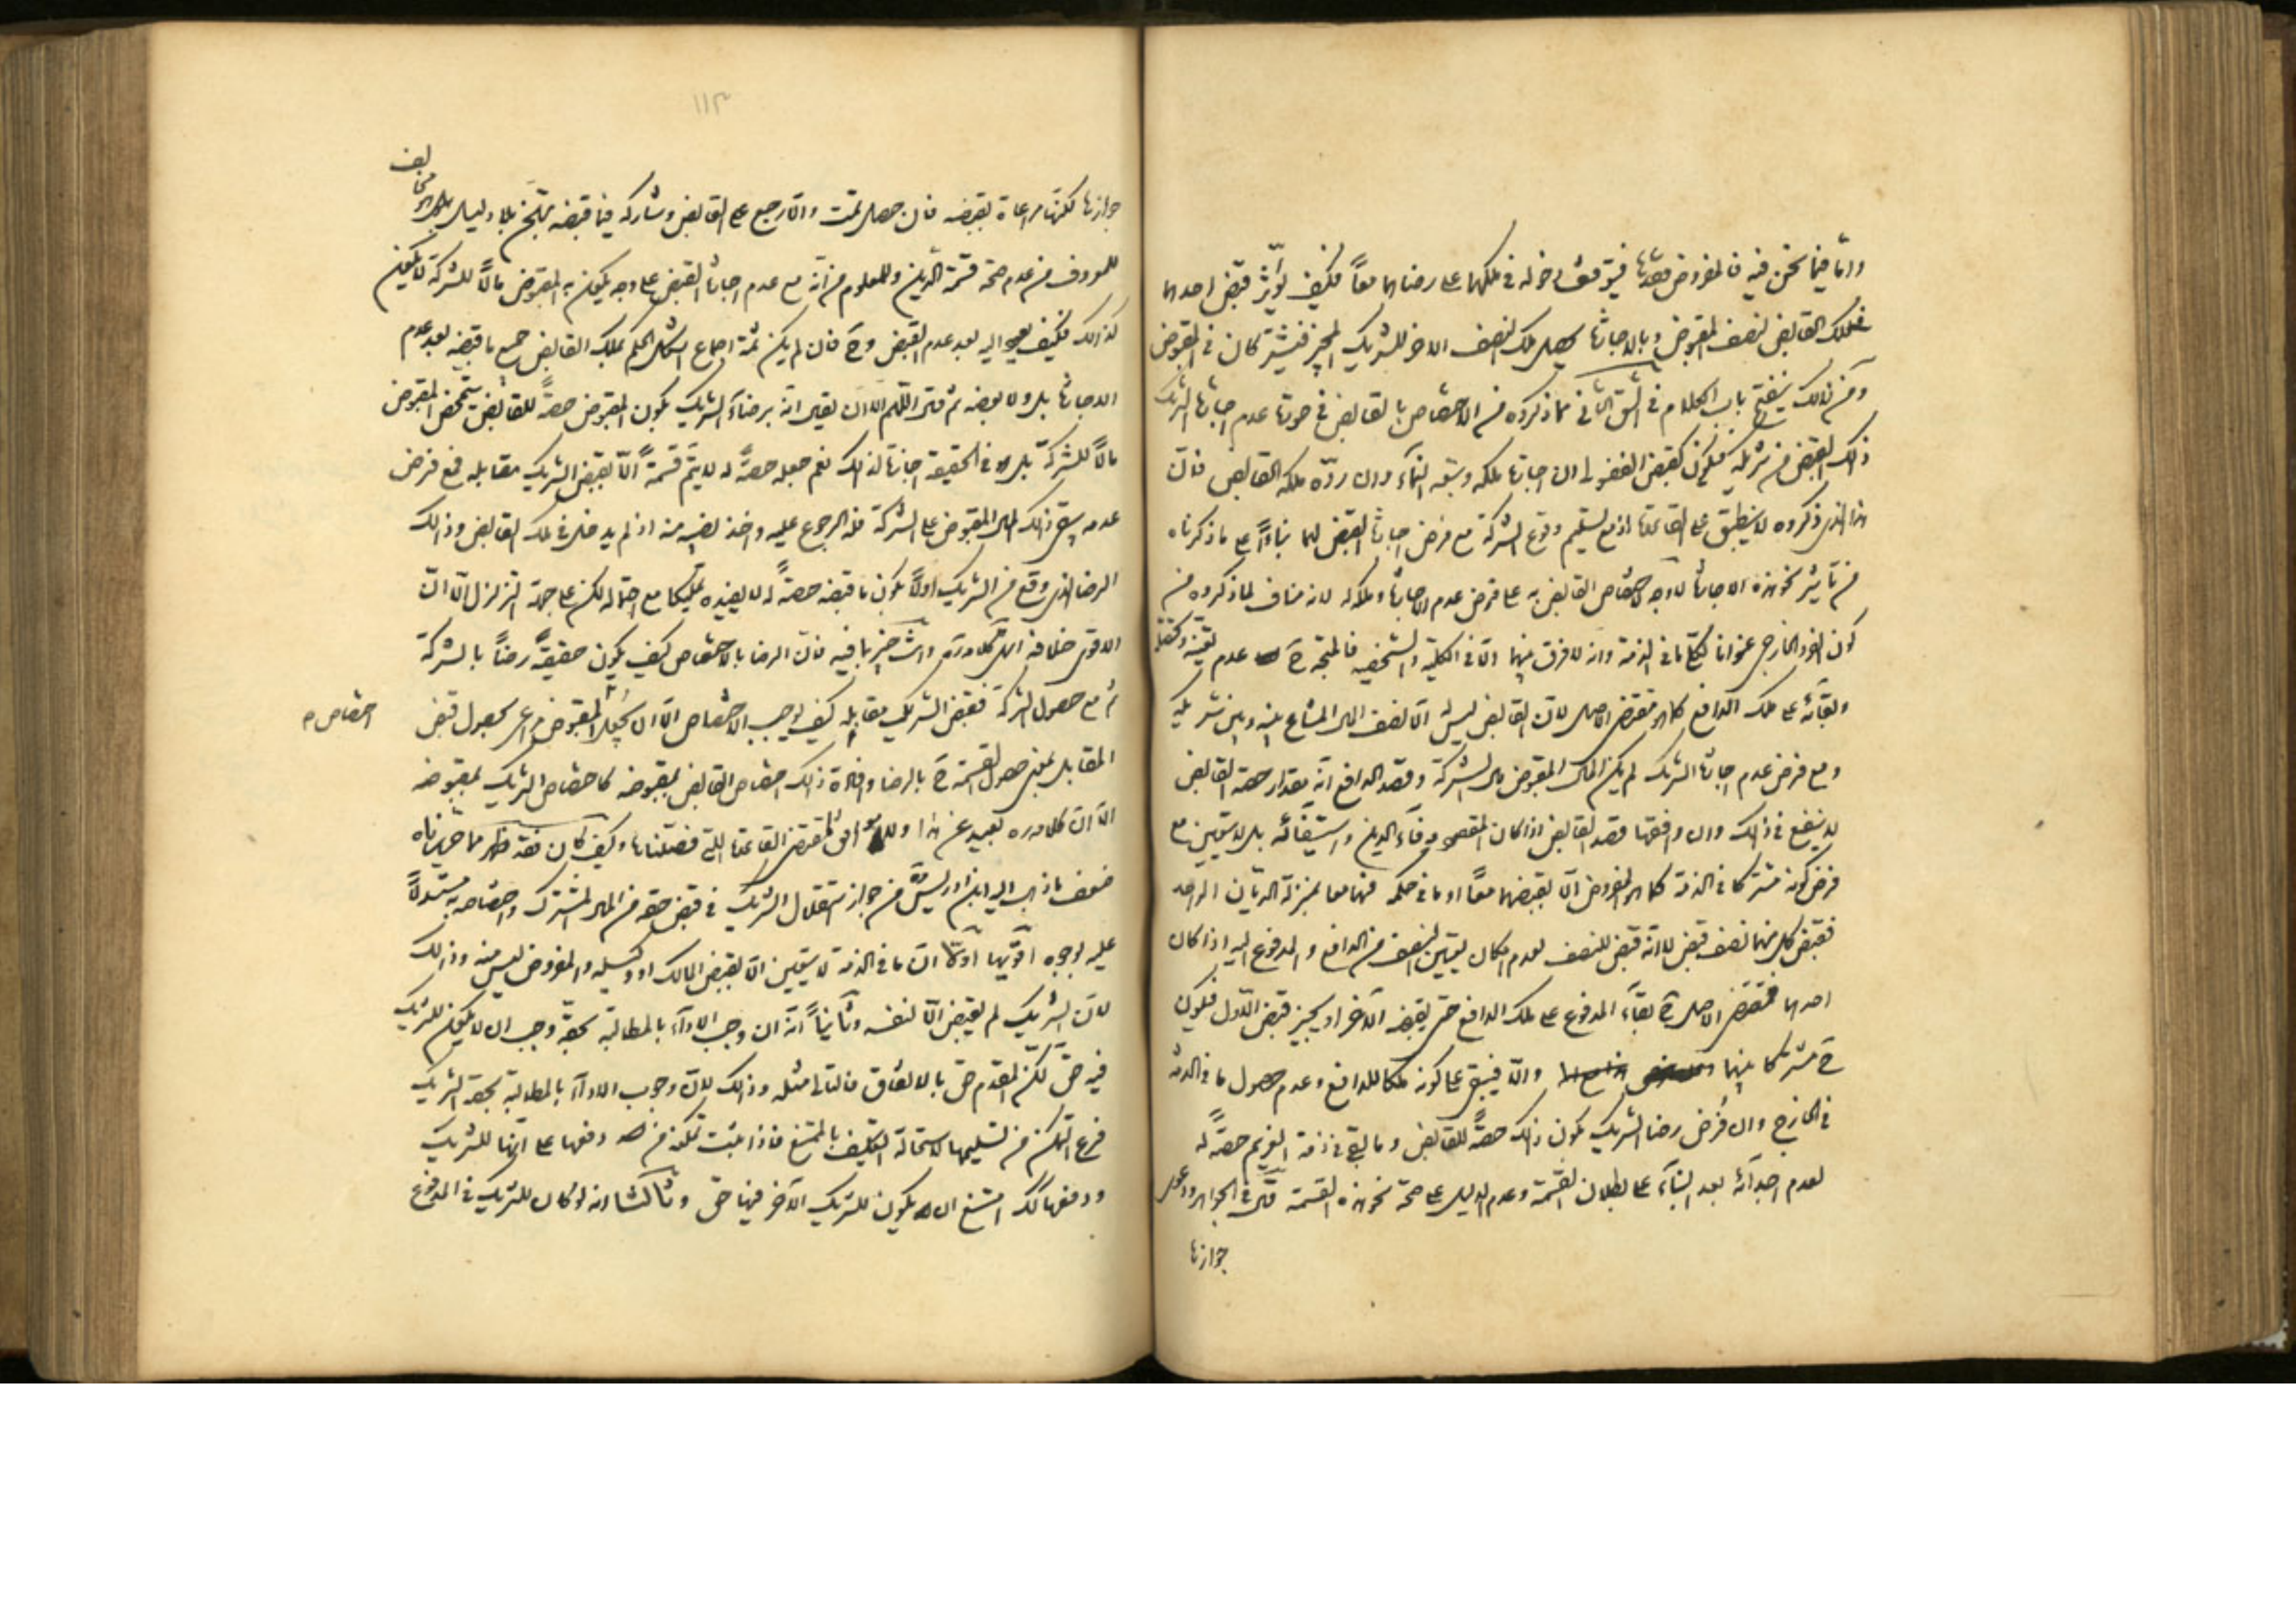 واما فيما نحن فيه فالمفروض فيتوقف دخوله في ملكهما على رضاهما معاً فكيف يؤثر قبض احدهما
فملك القابض لنصف المقبوض وبالاجازة يحصل ملك النصف الاخر للشريك المجيز فيشتركان في المقبوض
ومن ذلك ينفتح باب الكلام في الشق الثاني مما ذكروه من الاختصاص بالقابض في صورة عدم اجازة الشريك
ذلك القبض من شريكه فيكون كقبض الفضولي ان اجازه ملكه وتبعه النماء وان ردّه ملكه القابض فانّ
هذا الذي ذكروه لا ينطبق على القاعدة اذ مع تسليم وقوع الشركة مع فرض اجازة القبض لهما بناءً على ما ذكرناه
من تأثير نحو هذه الاجازة لا وجه لاختصاص القابض به على فرض عدم الاجازة وملكه له لانه مناف لما ذكروه من
كون الفرد الخارجي عنوانا لما في الذمة وانه لا فرق بينهما الّا في الكلية والشخصية فالمتجه ح عدم تعينه
وبقائه على ملك الدافع كما هو مقتضى الاصل لان القابض ليس له الّا نصف المال المشاع بينه وبين شريكه
ومع فرض عدم اجازة الشريك لم يكن المال المقبوض مال الشركة وقصد الدافع انه مقدار حصة القابض
لا ينفع في ذلك وان وافقها قصد القابض اذا كان المقصود وفاء الدين واستيفائه بل لا يتعين مع
فرض كونه مشتركا في الذمة كما هو المفروض الّا بقبضهما معاً او ما في حكمه فهما معا بمنزلة الديّان الواحد
فقبض كل منهما نصف قبض لا انّه قبض للنصف لعدم امكان تعيين النصف من الدافع والمدفوع اليه اذا كان
احدهما فمقتضى الاصل ح بقاء المدفوع على ملك الدافع حتى يقبضه الآخر او يجيز قبض الاول فيكون
ح مشتركا بينهما والّا فيبقى على كونه ملكا للدافع وعدم حصول ما في الذمة
في الخارج وان فُرض رضا الشريك بكون ذلك حصةً للقابض وما بقي في ذمة الغريم حصةً له
لعدم اجدائه بعد البناء على بطلان القسمة وعدم الدليل على صحة نحو هذه القسمة في الجواهر ودعوى
جوازها
١١٣
جوازها لكنها مراعاة بقبضه فان حصل تمت والّا رجع على القابض وشاركه فيما قبضه بلا دليل بل هو مخالف
للمعروف من عدم صحة قسمة الدين والمعلوم من انّه مع عدم اجازة القبض على وجه يكون به المقبوض مالاً للشركة لا يكون
كذلك فكيف يعود اليه بعد عدم القبض وح فان لم يكن ثمة اجماع اشكل الحكم بملك القابض جميع ما قبضه بعد عدم
الاجازة بل ولا بعضه ثم قال اللهم الا ان يقال انه برضاء الشريك بكون المقبوض حصةً للقابض المقبوض
مالاً للشركة بل هو في الحقيقة اجازة لذلك نعم جعله حصةً له لا يتم قسمةً الّا بقبض الشريك مقابله فمع فرض
عدمه يبقى ذلك المال المقبوض على الشركة فله الرجوع عليه واخذ نصيبه منه اذ لم يدخل في ملك القابض وذلك
الرضا الذي وقع من الشريك اولاً بكون ما قبضه حصةً له لا يفيده تمليكا مع احتماله لكن على جهة التزلزل الّا انّ
الاقوى خلافه انتهى كلامه وانت خبير بما فيه فان الرضا بالاختصاص كيف يكون حقيقةً رضاً بالشركة
ثم مع حصول الشركة فقبض الشريك مقابله كيف يوجب الاختصاص الّا ان يُجعل اختصاص المقبوض مراعى بحصول قبض
المقابل بمعنى حصول القسمة ح بالرضا وفائدة ذلك اختصاص القابض بمقبوضه كاختصاص الشريك بمقبوضه
الّا انّ كلامه ره بعيد عن هذا وليس موافقاً لمقتضى القاعدة التي فصّلناها وكيف كان فقد ظهر مما حررناه
ضعف ما ذهب اليه ابن ادريس من جواز استقلال الشريك في قبض حقه من المال المشترك واختصاصه به مستدلاً
عليه بوجوه اقويها اوّلاً انّ ما في الذمة لا يتعين الّا بقبض المالك او وكيله والمفروض ليس منه وذلك
لان الشريك لم يقبض الّا لنفسه وثانياً انّه ان وجب الاداء بالمطالبة بحقّه وجب ان لا يكون للشريك
فيه حق لكن المقدم حق بالاتفاق فالتالي مثله وذلك لانّ وجوب الاداء بالمطالبة بحقه الشريك
فرع التمكن من تسليمها لاستحالة التكليف بالممتنع فاذا ثبت تمكنه من دفعها على انّها للشريك
ودفعها كذلك امتنع ان يكون للشريك الآخر فيها حق وثالثا انه لو كان للشريك في المدفوع